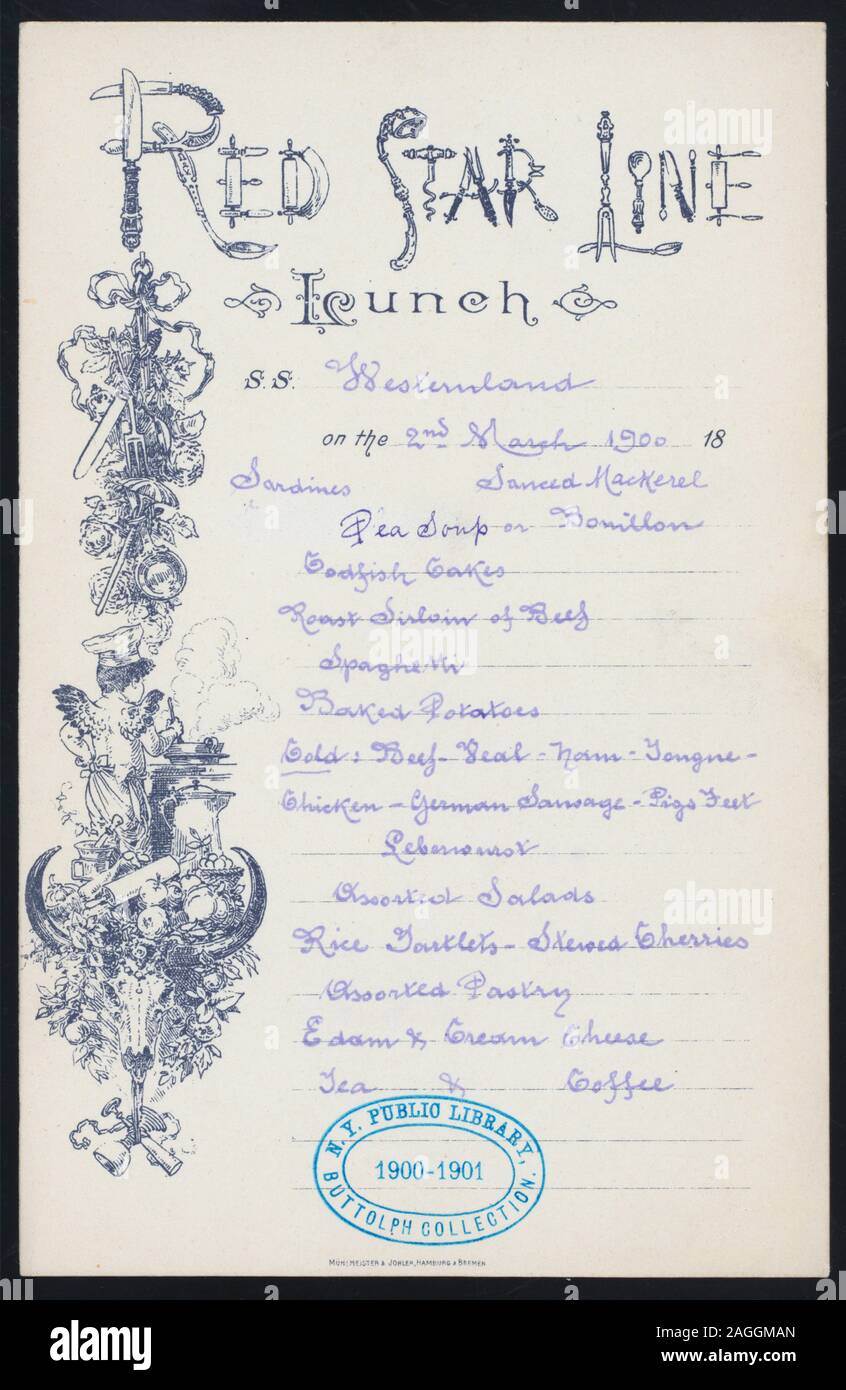 RED STAR LINE
Lunch
S.S. Westernland
on the 2nd March 1900 18
Sardines Sauced Mackerel
Pea Soup or Bouillon
Codfish Cakes
Roast Sirloin of Beef
Spaghetti
Baked Potatoes
Cold: Beef - Veal - Ham - Tongue -
Chicken - German Sausage - Pigs Feet
Leberwurst
Assorted Salads
Rice Tartlets - Stewed Cherries
Assorted Pastry
Edam & Cream Cheese
Tea & Coffee
N.Y. PUBLIC LIBRARY,
1900-1901
BUTTOLPH COLLECTION.
MÜHLMEISTER & JOHLER, HAMBURG & BREMEN
alamy
Image ID: 2AGGMAN
www.alamy.com